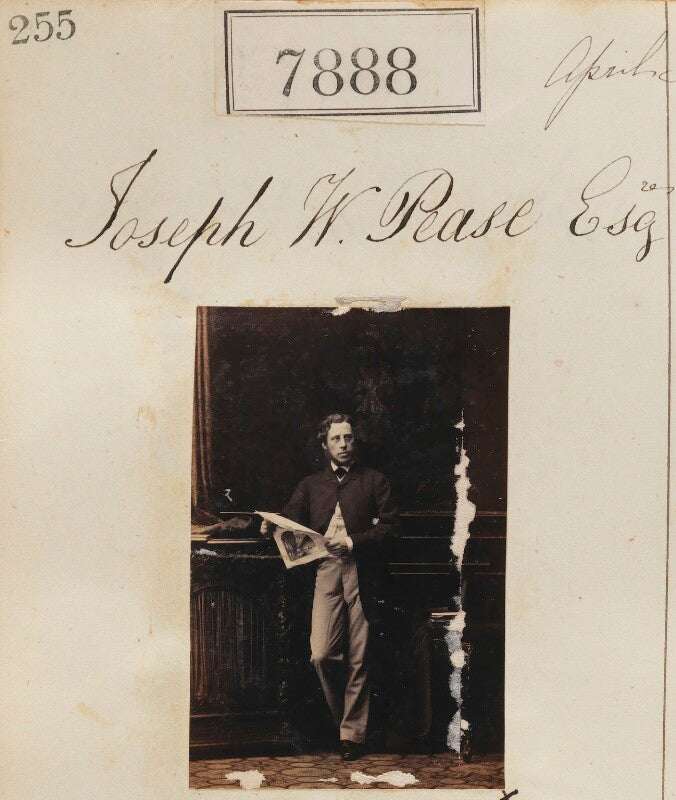 255
7888
April
Joseph W. Pease Esqre